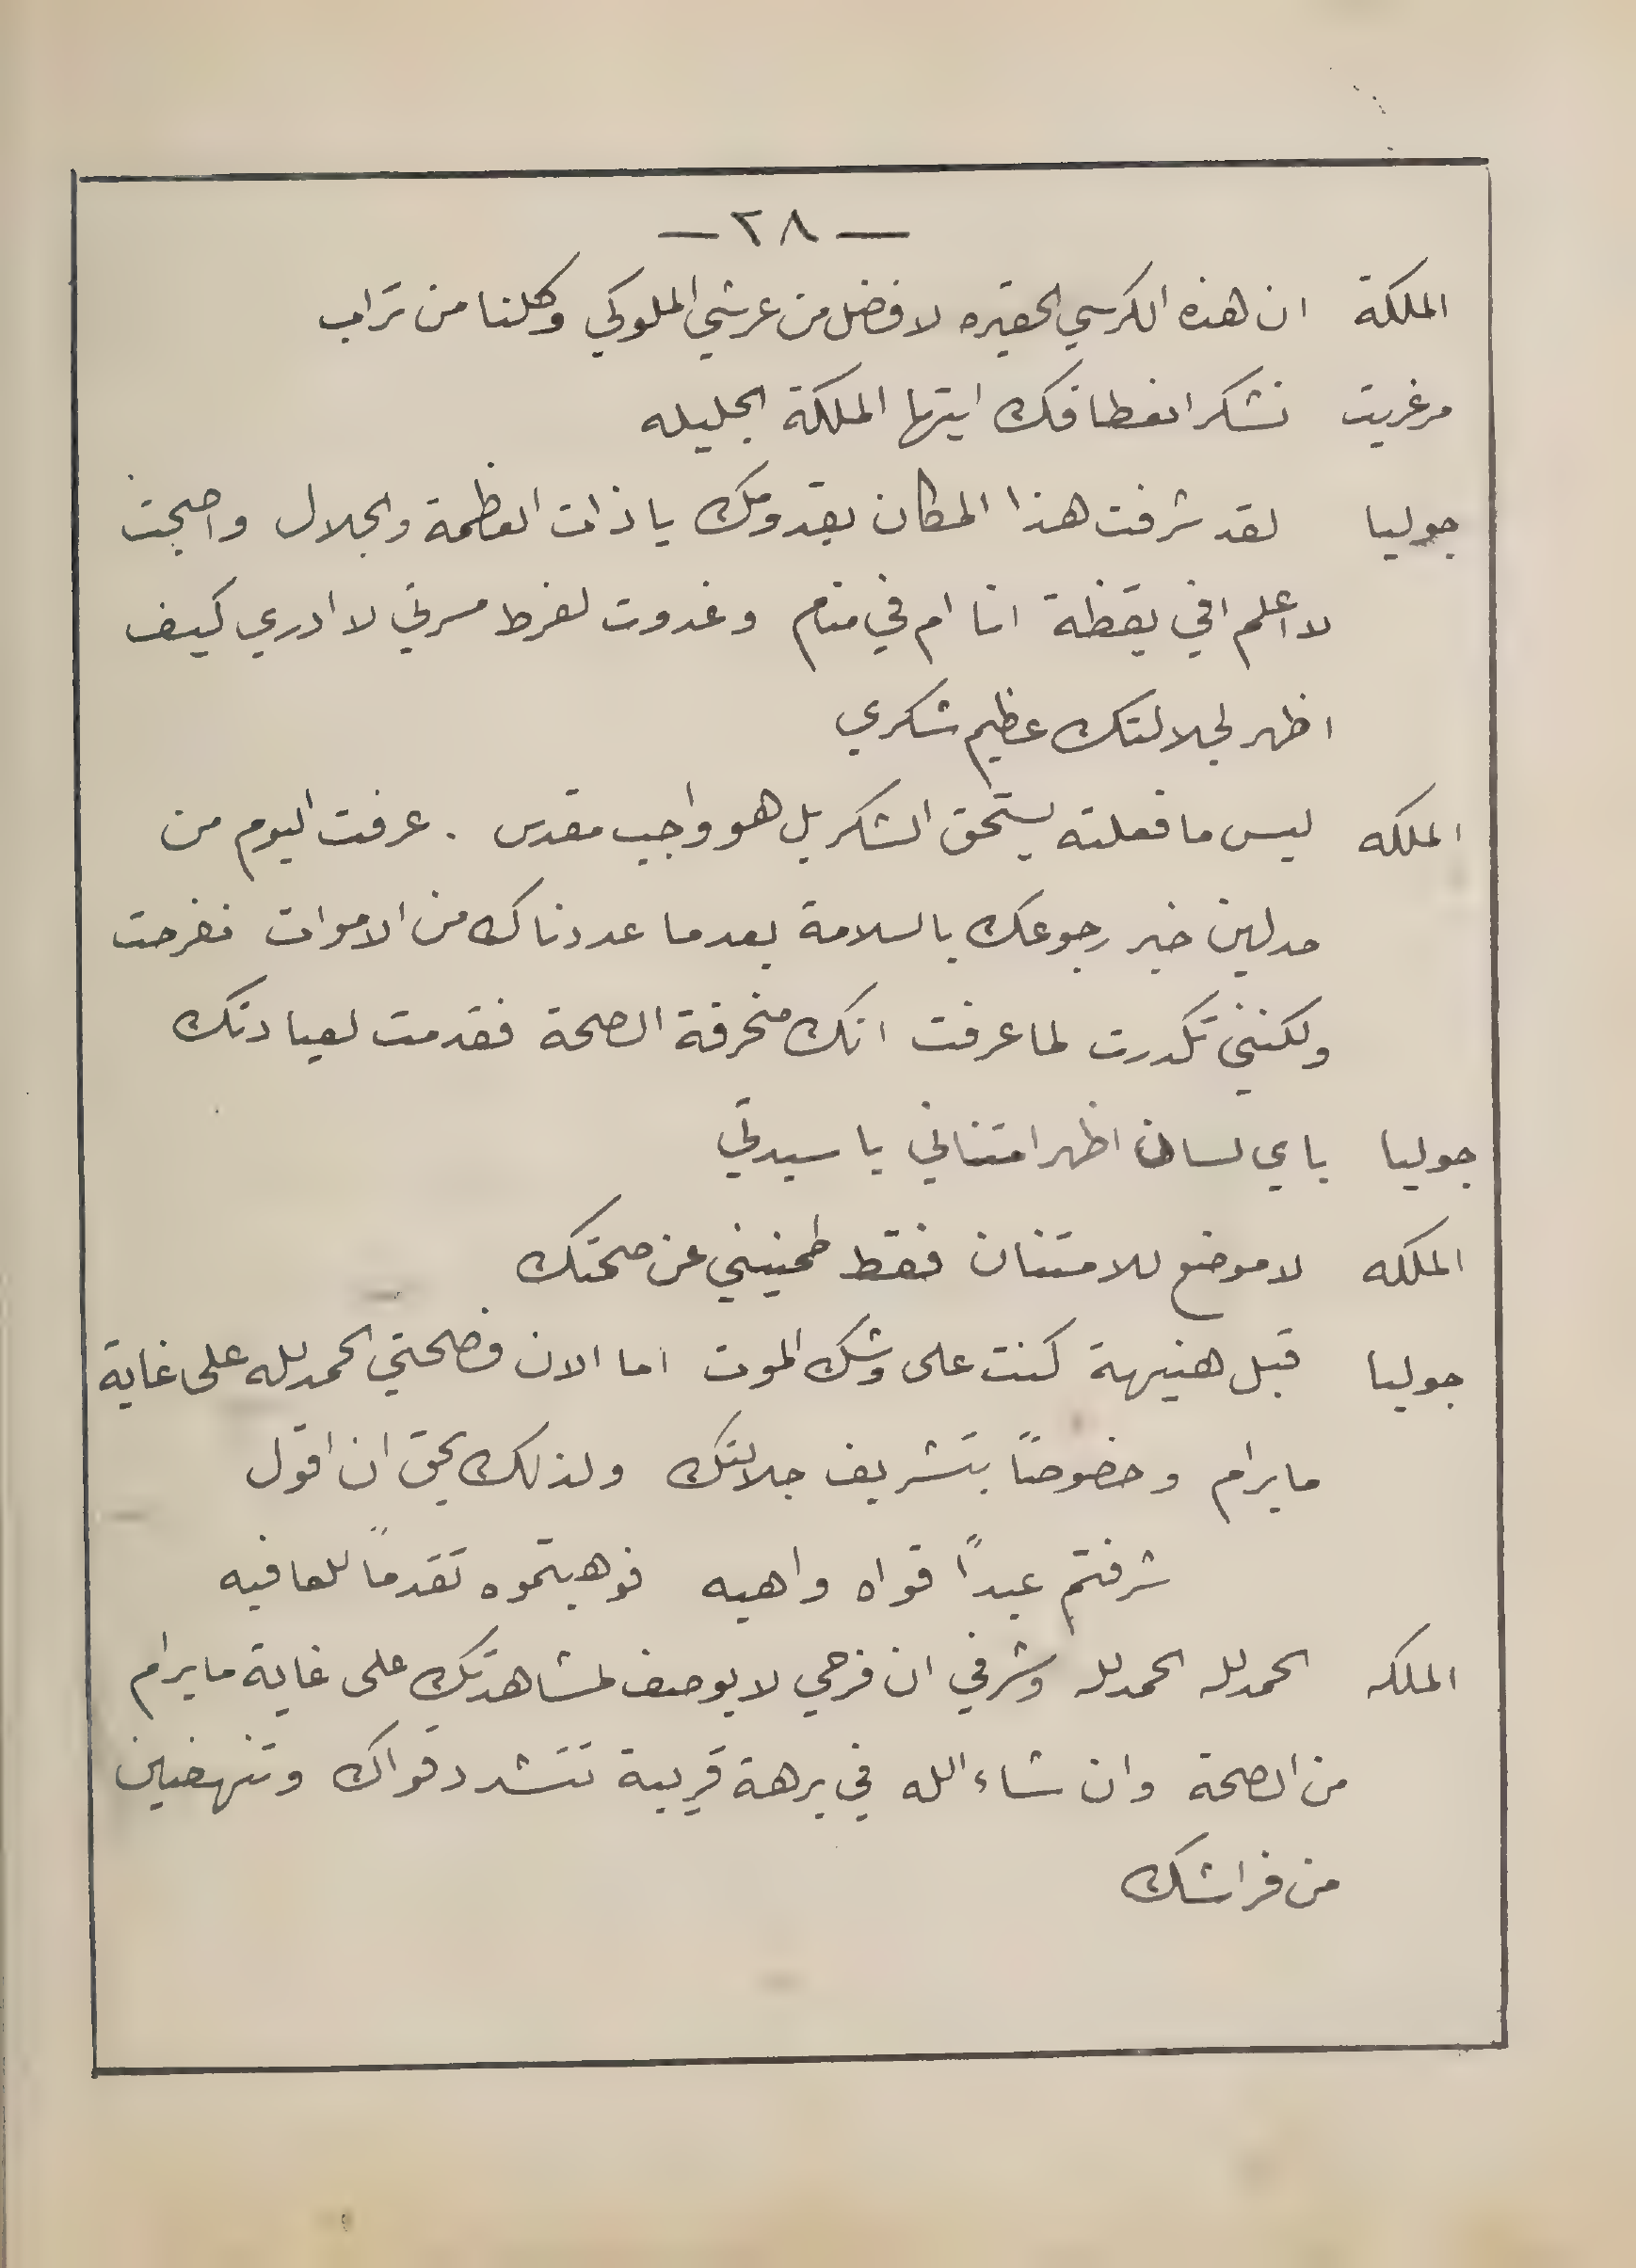 — ٢٨ —
الملكة ان هذه الكرسي الحقيره لافضل من عرشي الملوكي وكلنا من تراب
مرغريت نشكر انعطافك ايتها الملكة الجليله
جوليا لقد شرفت هذا المكان بقدومك يا ذات العظمة والجلال واصبحت
لا اعلم افي يقظة انا ام في منام وغدوت لفرط مسرتي لا ادري كيف
اظهر لجلالتك عظيم شكري
الملكه ليس ما فعلته يستحق الشكر بل هو واجب مقدس . عرفت اليوم من
مدلين خبر رجوعك بالسلامة بعدما عددناك من الاموات ففرحت
ولكنني تكدرت لما عرفت انك منحرفة الصحة فقدمت لعيادتك
جوليا باي لسان اظهر امتناني يا سيدتي
الملكه لا موضع للامتنان فقط طمنيني عن صحتك
جوليا قبل هنيهة كنت على وشك الموت اما الان فصحتي الحمدلله على غاية
مايرام وخصوصاً بتشريف جلالتك ولذلك يحق ان اقول
شرفتم عبداً قواه واهيه فوهبتموه تقدماً للعافيه
الملكه الحمدلله الحمدلله وشرفي ان فرحي لا يوصف لمشاهدتك على غاية مايرام
من الصحة وان شاء الله في برهة قريبة تتشدد قواك وتنهضين
من فراشك